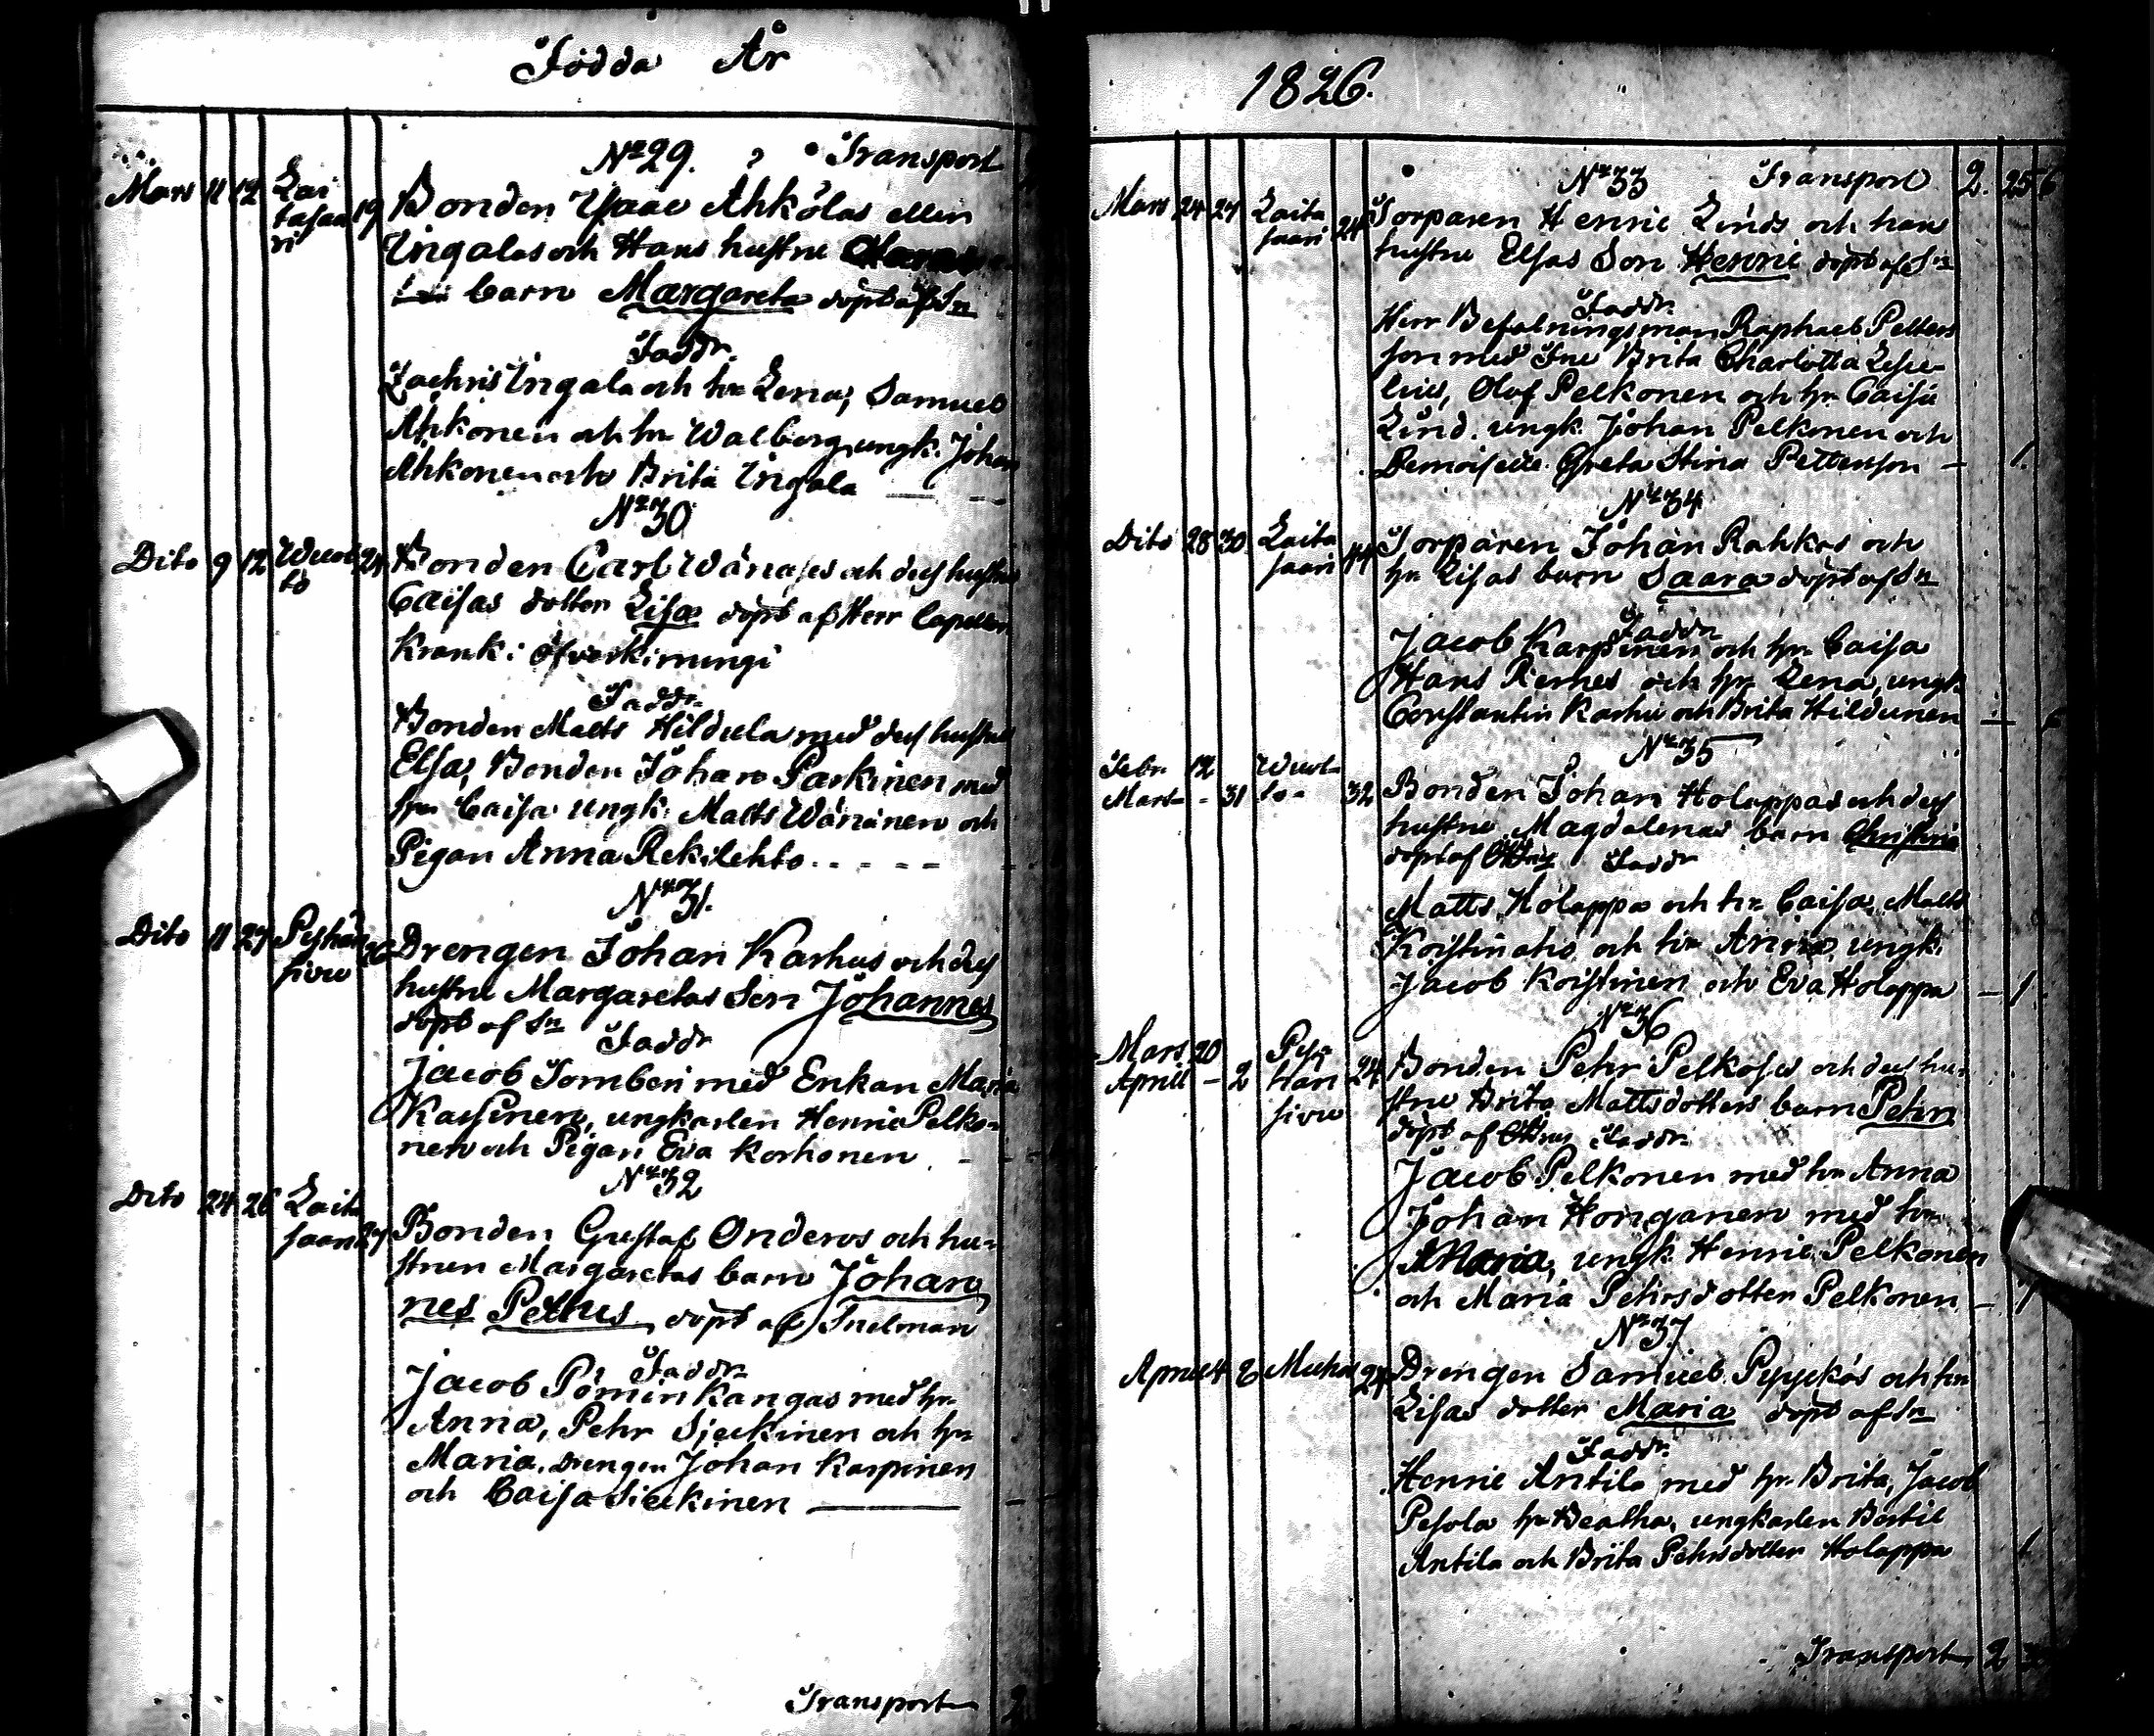 Födda År
Nr 29. Transport
Mars 11 12 Lai
tasaa
ri 19 Bonden Isaac Ahkolas eller
Ingalas och Hans hustru
barn Margareta döpt af Sn
Faddr.
Zachris Ingala och hr Lena, Samuel
Ahkonen och hr Walborg, ungk. Johan
Ahkonen och Brita Ingala
Nr 30
Dito 9 12 Wuol
to 24 Bonden Carl Wänäses och des hustru
Caisas dotter Lisa döpt af Herr Capellan
Krank i
Faddr.
Bonden Matts Hildula med des hustru
Elsa, Bonden Johan Parkinen med
hr Caisa ungk. Matts Wänänen och
Pigan Anna Rekilehto
Nr 31.
Dito 11 27 Peshan
sivu Drengen Johan Karhus och des
hustru Margaretas Son Johannes
döpt af Sn
Faddr
Jacob Tomberi med Enkan Maria
ungkarlen Henric Pelko-
nen och Pigan Eva Korhonen
Nr 32
Dito 24 26 Laita
saari 27 Bonden Gustaf Onderos och hu-
strun Margaretas barn Johan
nes Petrus döpt af Snelman
Faddr
Jacob Pominkangas med hr
Anna, Pehr Sjeckinen och hr
Maria, Drengen Johan Karpinen
och Caisa Sieckinen
Transport 2
1826.
Nr 33 Transport 2. 25 6
Mars 24 27 Laita
saari 24 Torparen Henric Linds och hans
hustru Elsas Son Henric döpt af Sn
Faddr.
Herr Befalningsman Raphael Petters
son med Fru Brita Charlotta
Olof Pelkonen och hr Caisa
Lind. ungk. Johan Pelkonen och
Demoiselle Greta Stina Pettersson 1.
Nr 34
Dito 28 30 Laita
saari 44 Torparen Johan Rahkos och
hr Lisas barn Saara döpt af Sn
Faddr
Jacob Karpinen och hr Caisa
Hans Riemes och hr Lena, ungk.
Constantin Karhu och Brita Hildunen
Nr 35
Febr 12 Wuol-
Mars - 31 to - 32 Bonden Johan Holappas och des
hustru Magdalenas barn Christina
döpt af Faddr
Matts Holappa och hr Caisa, Matts
Koistinaho och hr Anna, ungk.
Jacob Koistinen och Eva Holappa 1
Nr 36
Mars 20 Pesi
April - 2 Han
sivu 24 Bonden Pehr Pelkoses och des hu-
stru Brita Mattsdotters barn Pehr
döpt af Faddr.
Jacob Pelkonen med hr Anna
Johan Honganen med hr
Maria, ungk. Henric Pelkonen
och Maria Pehrsdotter Pelkonen 1
Nr 37.
April 4 6 Muhos 24 Drengen Samuel Pyyckös och hr
Lisas dotter Maria döpt af Sn
Faddr.
Henric Antila med hr Brita, Jacob
Pesola hr Beatha, ungkarlen Bertil
Antila och Brita Pehrsdotter Holappa 1
Transport 2